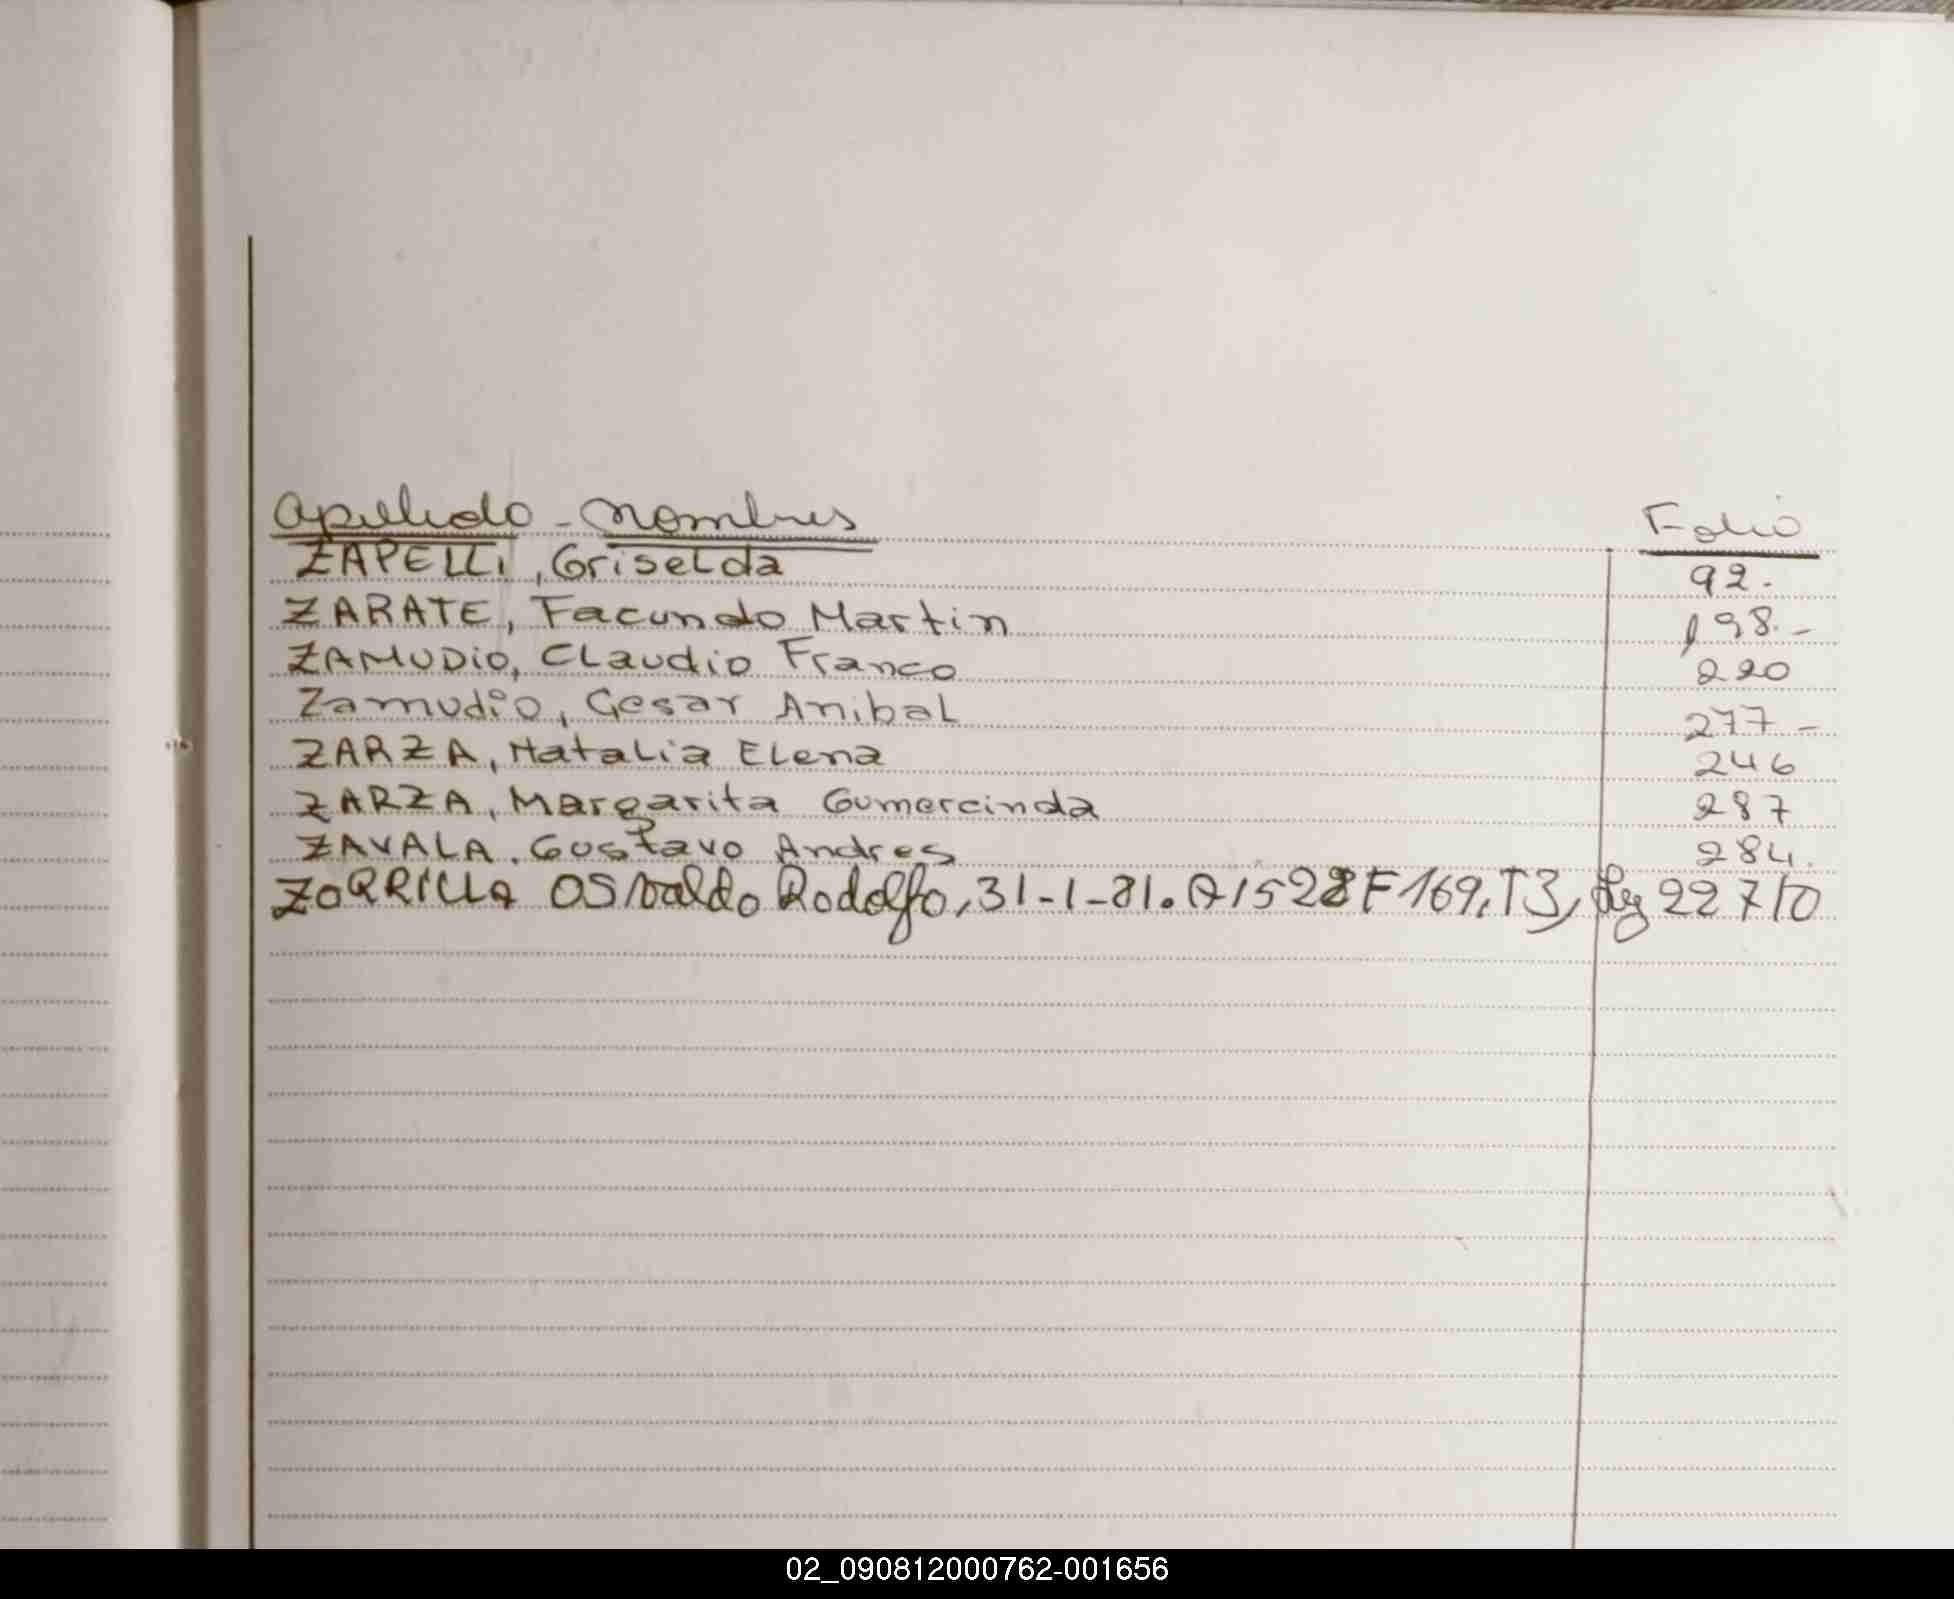 Apellido - Nombres Folio
ZAPELLI, Griselda 92.
ZARATE, Facundo Martin 198.-
ZAMUDIO, Claudio Franco 220
Zamudio, Cesar Anibal 277-
ZARZA, Natalia Elena 246
ZARZA, Margarita Gumercinda 287
ZAVALA. Gustavo Andres 284.
ZORRILLA OSvaldo Rodolfo, 31-1-81. A1528 F169, T3, Lg 227/0
02_090812000762-001656